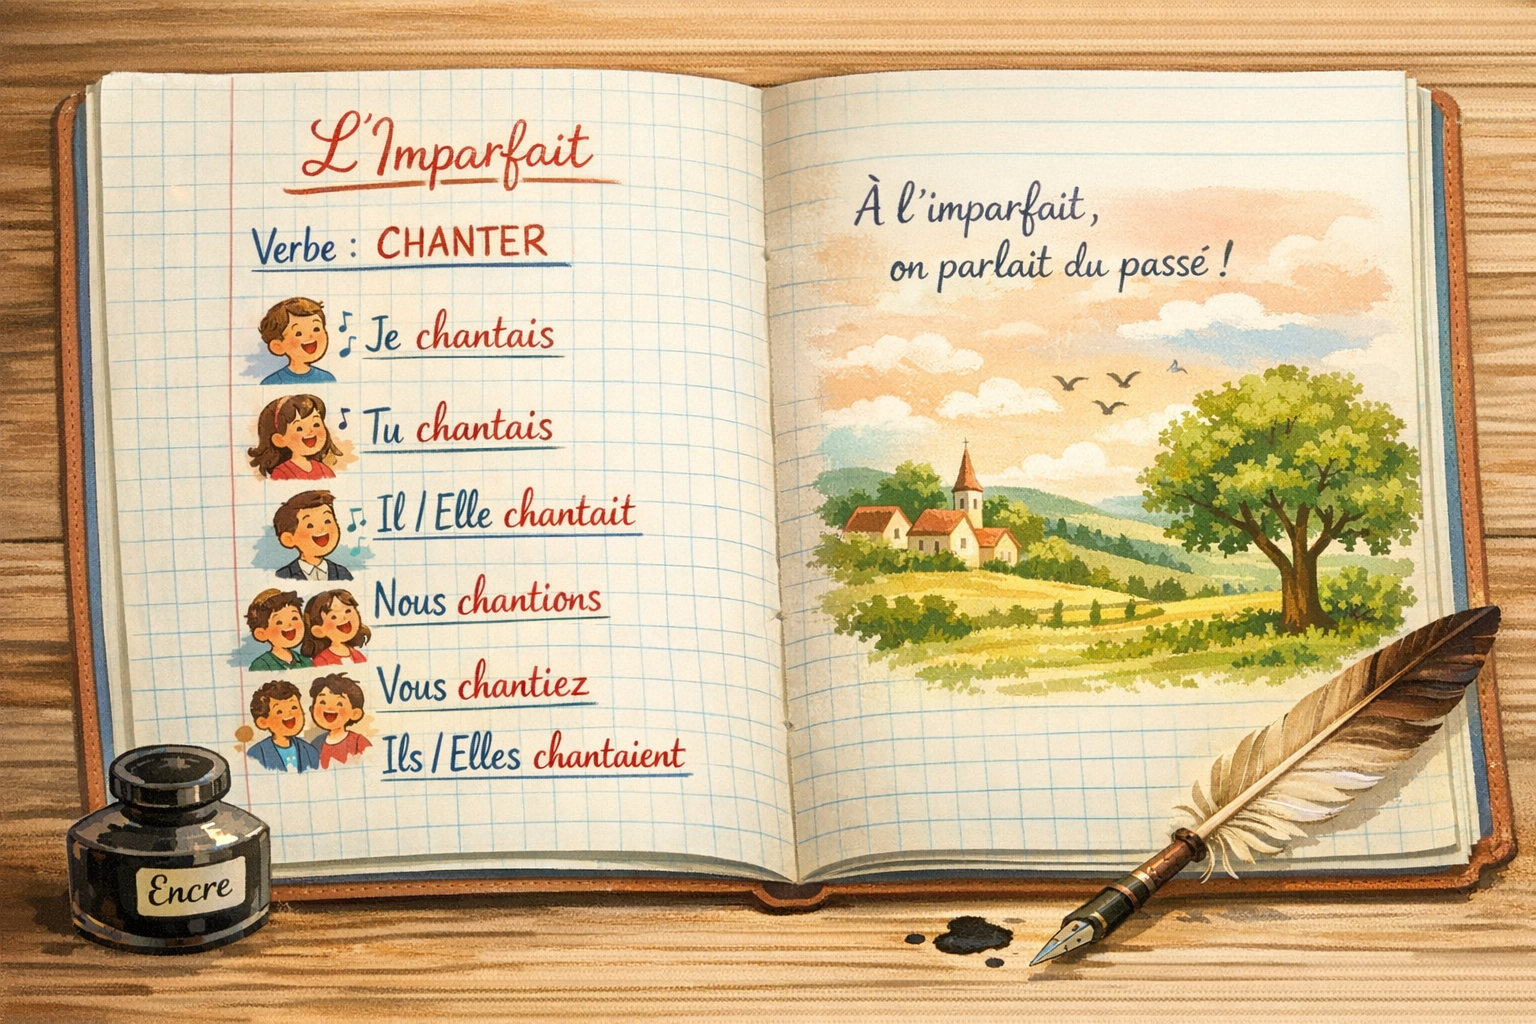 L'Imparfait
Verbe : CHANTER
Je chantais
Tu chantais
Il / Elle chantait
Nous chantions
Vous chantiez
Ils / Elles chantaient
À l'imparfait,
on parlait du passé !
Encre